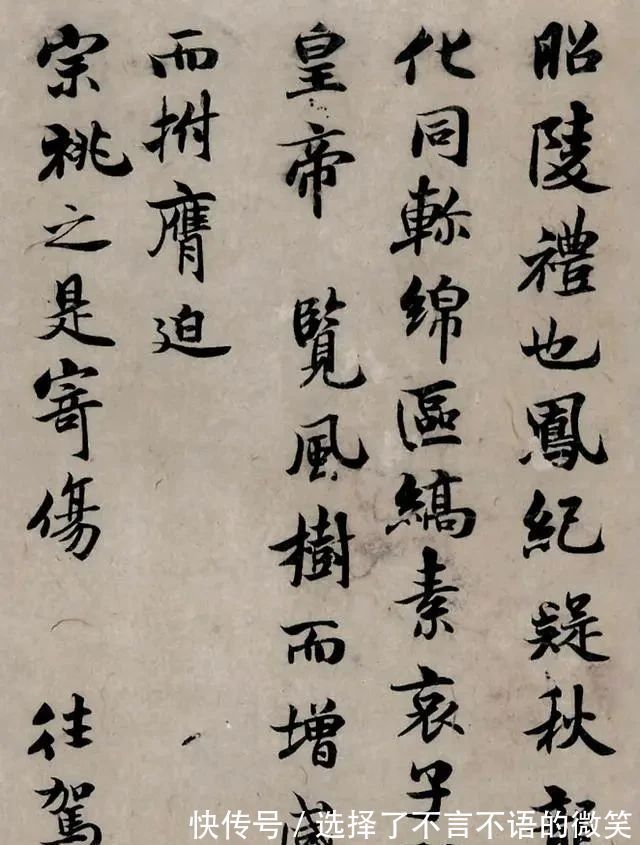 昭陵禮也鳳紀疑秋龍
化同軫綿區縞素哀子
皇帝 覽風樹而增感
而拊膺迫
宗祧之是寄傷 往駕
快传号/选择了不言不语的微笑